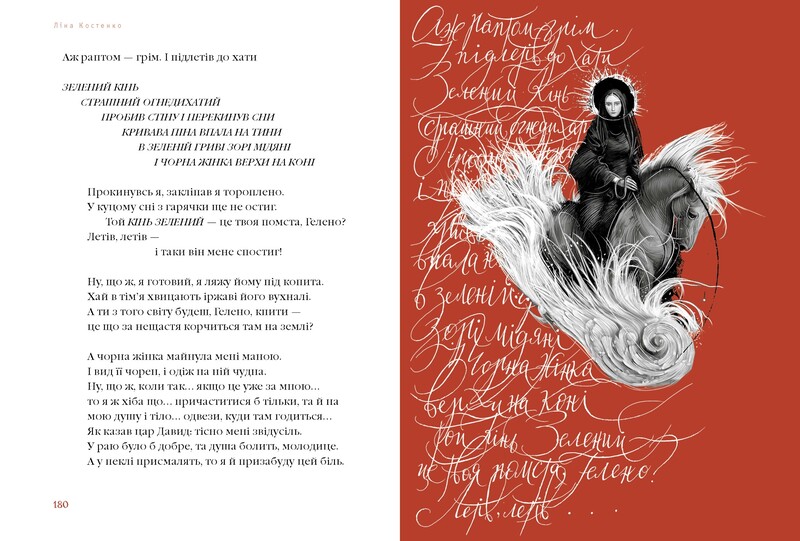 Ліна Костенко
Аж раптом — грім. І підлетів до хати
ЗЕЛЕНИЙ КІНЬ
СТРАШНИЙ ОГНЕДИХАТИЙ
ПРОБИВ СТІНУ І ПЕРЕКИНУВ СНИ
КРИВАВА ПІНА ВПАЛА НА ТИНИ
В ЗЕЛЕНІЙ ГРИВІ ЗОРІ МІДЯНІ
І ЧОРНА ЖІНКА ВЕРХИ НА КОНІ
Прокинувсь я, закліпав я тороплено.
У куцому сні з гарячки ще не остиг.
Той КІНЬ ЗЕЛЕНИЙ — це твоя помста, Гелено?
Летів, летів —
і таки він мене спостиг!
Ну, що ж, я готовий, я ляжу йому під копита.
Хай в тім’я хвицають іржаві його вухналі.
А ти з того світу будеш, Гелено, кпити —
це що за нещастя корчиться там на землі?
А чорна жінка майнула мені маною.
І вид її чорен, і одіж на ній чудна.
Ну, що ж, коли так... якщо це уже за мною...
то я ж хіба що... причаститися б тільки, та й на
мою душу і тіло... одвези, куди там годиться...
Як казав цар Давид: тісно мені звідусіль.
У раю було б добре, та душа болить, молодице.
А у пеклі присмалять, то я й призабуду цей біль.
180
Аж раптом грім.
І підлетів до хати
Зелений Кінь
Страшний огнедихатий
в зеленій
Зорі мідяні
І Чорна Жінка
верхи на Коні
Той Кінь Зелений
це твоя помста, Гелено?
Летів, летів . . . .